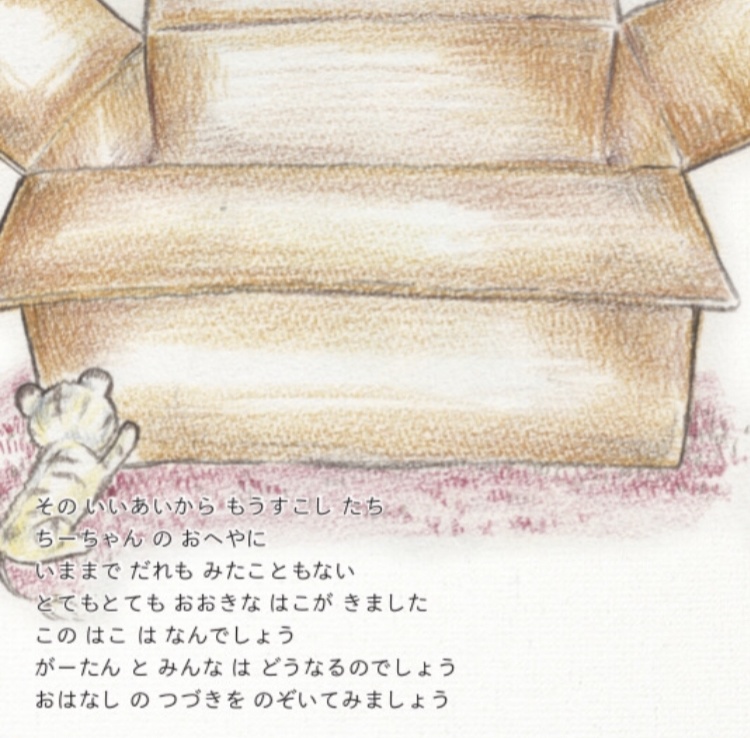 その いいあいから もうすこし たち
ちーちゃん の おへやに
いままで だれも みたこともない
とてもとても おおきな はこが きました
この はこ は なんでしょう
がーたん と みんな は どうなるのでしょう
おはなし の つづきを のぞいてみましょう